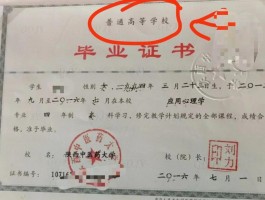 普通高等学校
毕业证书
学生 性别 一九九四年 三月二十三日生，于二〇一
九月至二〇一六年七月在本校 应用心理学
专业 四年制 本科学习，修完教学计划规定的全部课程，成绩合
格，准予毕业。
校 名： 陕西中医药大学 校（院）长：
刘力印
证书编号： 10716 二〇一六年 七月一日